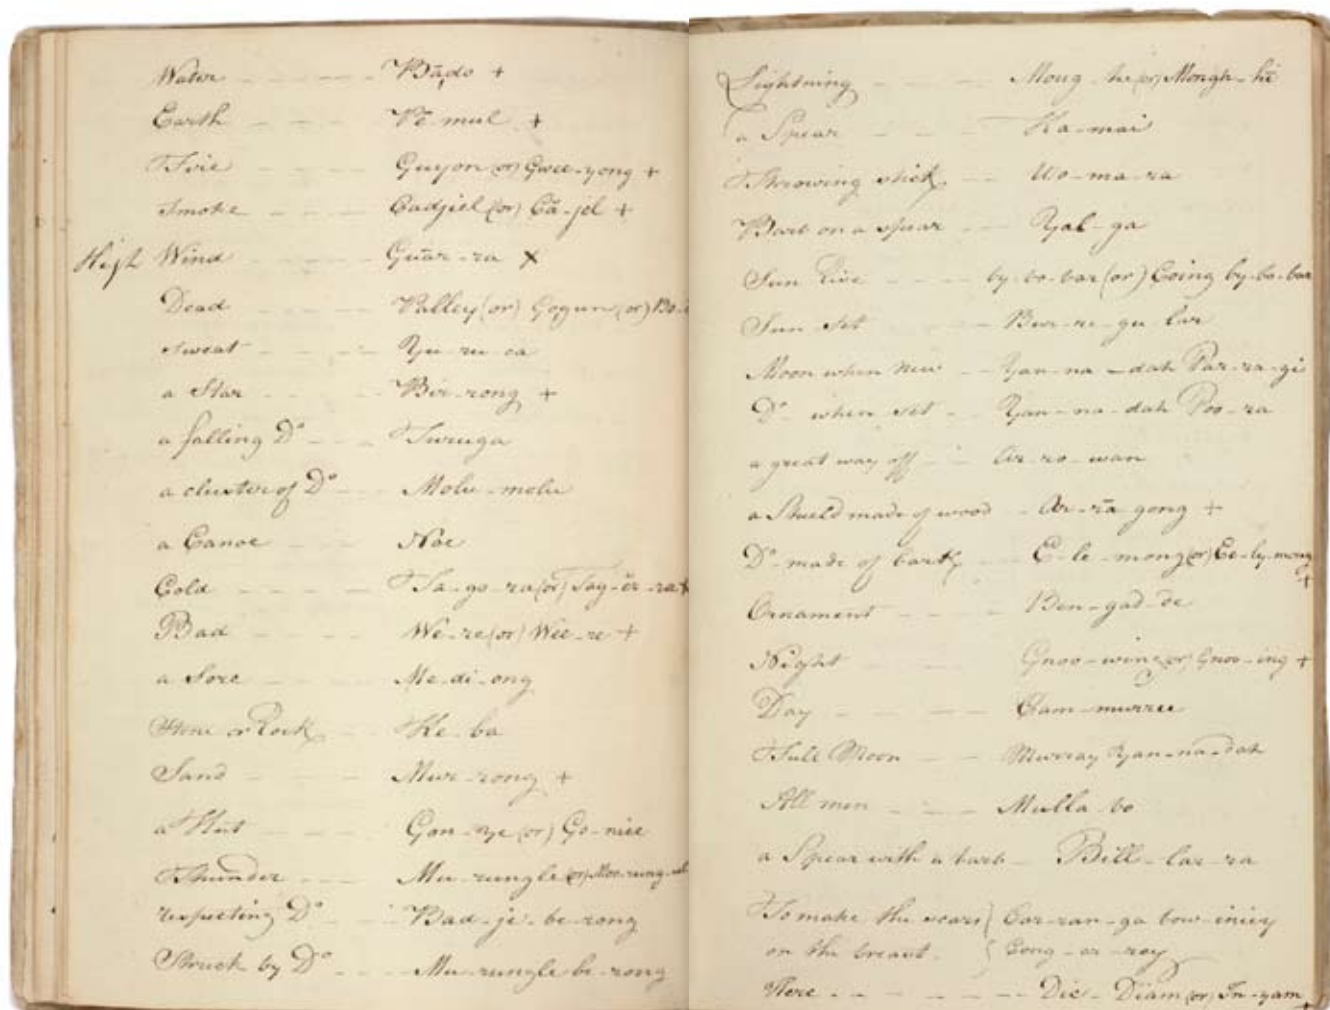 Water - - - - - Bādo +
Earth - - - - Pē-mul +
Fire - - - - Guyon (or) Gwee-yong +
Smoke - - - - Cadjiel (or) Cā-jel +
High Wind - - - Guār-ra X
Dead - - - Valley (or) Gogun (or)
Sweat - - - Yu-ru-ca
a Star - - - Bir-rong +
a falling Do - - - Turuga
a cluster of Do - - Molu-molu
a Canoe - - - Noe
Cold - - - - Ta-go-ra (or) Tag-ēr-ra X
Bad - - - Wē-re (or) Wee-re +
a Sore - - - Me-di-ong
Stone or Rock - - Ke-ba
Sand - - - Mur-rong +
a Hut - - - Gon-ye (or) Go-niee
Thunder - - - Mu-rungle (or)
respecting Do - - Bad-je-be-rong
Struck by Do - - - Mu-rungle be-rong
Lightning - - - Moug-he (or) Mongh-hē
a Spear - - - Ka-mai
Throwing stick - - Wo-ma-ra
Barb on a spear - - Yal-ga
Sun Rise - - - - by-bo-bar (or) Coing by-bo-bar
Sun set - - Bur-re-gu-lar
Moon when New - - Yan-na-dah Par-ra-gi
Do when set - - Yan-na-dah Poo-ra
a great way off - - Ar-ro-wan
a Shield made of wood - Ar-rā gong +
Do made of bark - - E-le-mong (or) Ee-ly-mong +
Ornament - - - Ben-gad-de
Night - - Gnoo-wing (or) Gnoo-ing +
Day - - - - Cam-murree
Full Moon - - Murray Yan-na-dah
All men - - - Mulla-bo
a Spear with a barb - Bill-lar-ra
To make the scars { Car-ran-ga bow-iniey
on the breast. { Cong-ar-rey
Here - - - - - Die-Diam (or) In-yam +